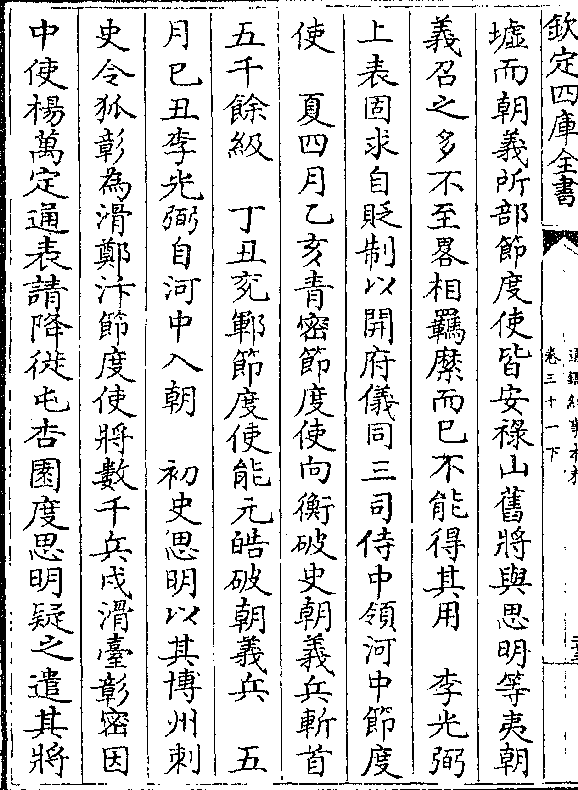 欽定四庫全書
卷三十一下
墟而朝義所部節度使皆安祿山舊將與思明等夷朝
義召之多不至畧相羈縻而已不能得其用　李光弼
上表固求自貶制以開府儀同三司侍中領河中節度
使　夏四月乙亥青密節度使向衡破史朝義兵斬首
五千餘級　丁丑兖鄆節度使能元皓破朝義兵　五
月己丑李光弼自河中入朝　初史思明以其博州刺
史令狐彰為滑鄭汴節度使將數千兵戍滑臺彰密因
中使楊萬定通表請降徙屯杏園度思明疑之遣其將